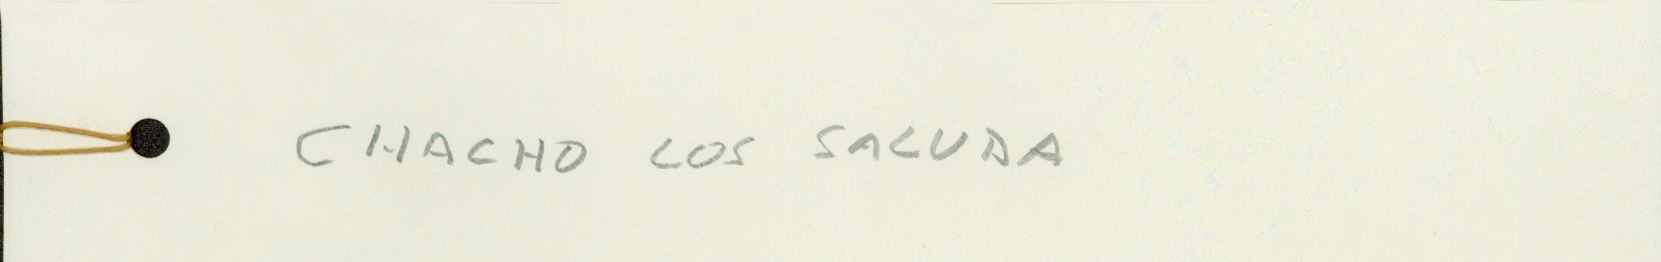 CHACHO LOS SALUDA